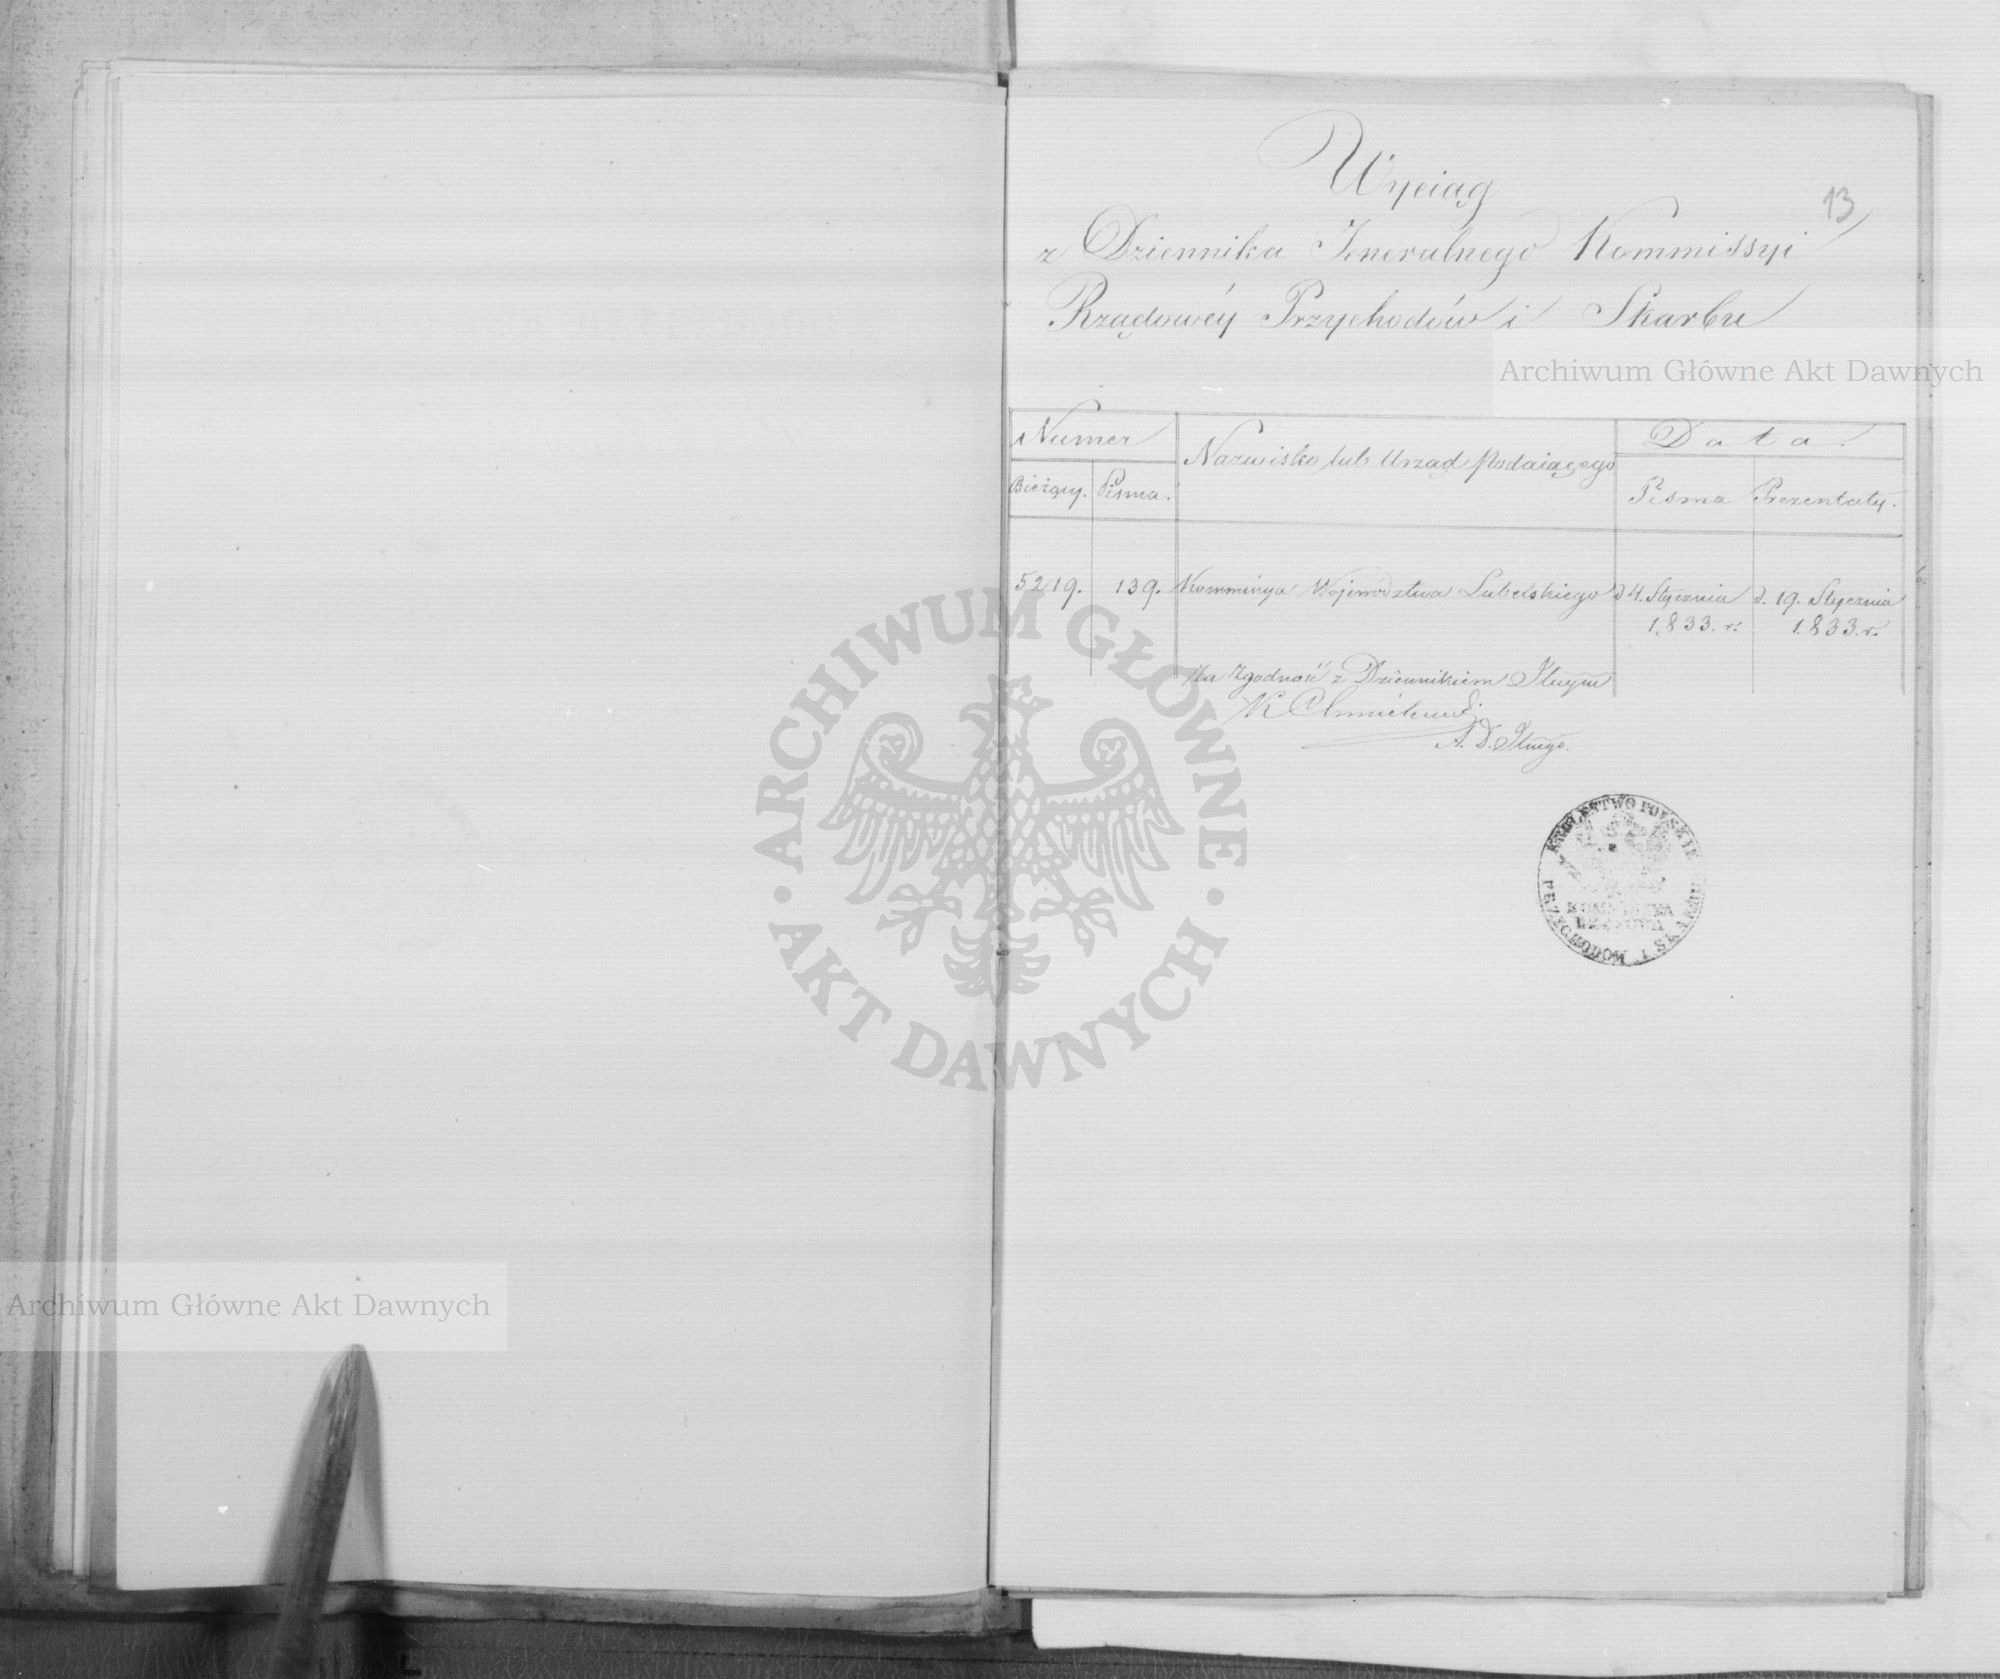 Wyciąg
13
z Dziennika Jeneralnego Kommissyi
Rządowéy Przychodów i Skarbu
Archiwum Główne Akt Dawnych
Numer
Nazwisko lub Urząd Podaiącego
Data.
Bieżący. Pisma.
Pisma Prezentaty.
5219. 139. Kommissya Województwa Lubelskiego d 4. Stycznia d. 19. Stycznia
1833. r. 1833. r.
Za Zgodność z Dziennikiem
A. D.
KRÓLESTWO POLSKIE
KOMMISSYA
RZĄDOWA
PRZYCHODOW I SKARBU
ARCHIWUM GŁÓWNE
· AKT DAWNYCH ·
Archiwum Główne Akt Dawnych